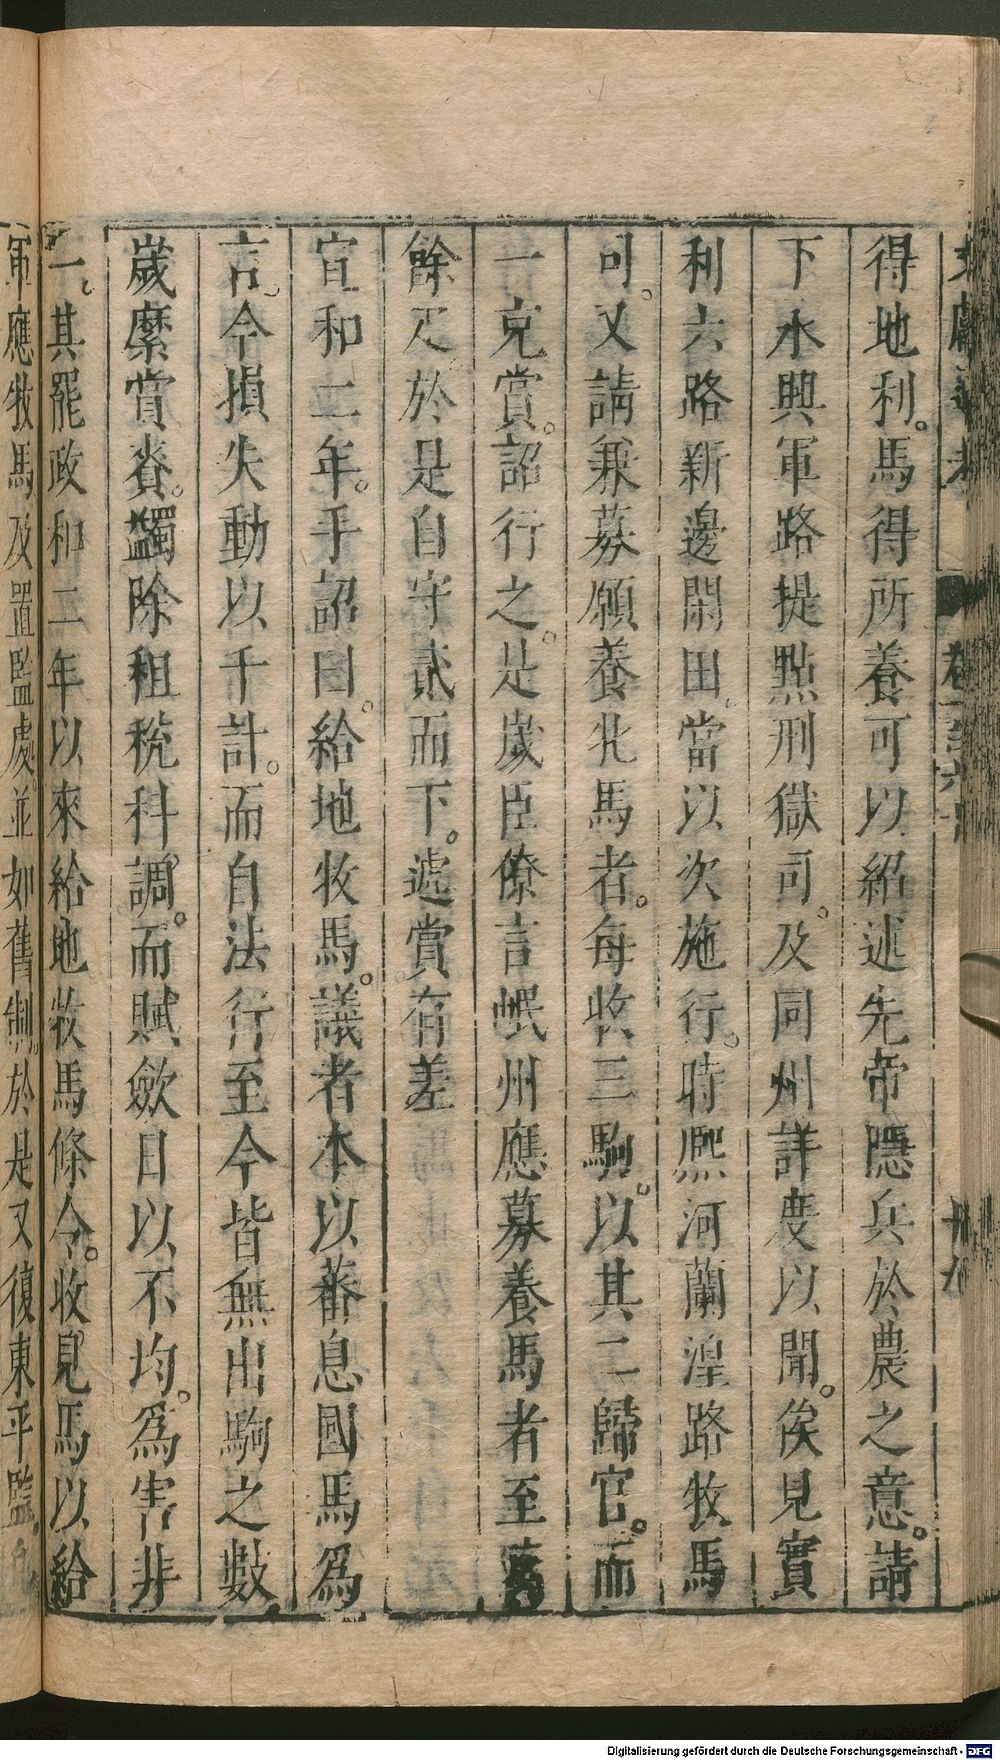 得地利。馬得所養可以紹述先帝隱兵於農之意。請
下永興軍路提點刑獄司。及同州詳度以聞。俟見實
利六路新邊閑田。當以次施行。時熈河蘭湟路牧馬
司。又請兼募願養牝馬者。每收三駒。以其二歸官。而
一充賞。詔行之。是嵗臣僚言岷州應募養馬者至萬
餘疋於是自守貳而下。遞賞有差
宣和二年。手詔曰。給地牧馬。議者本以蕃息國馬為
言。今損失動以千計。而自法行至今皆無出駒之數。
嵗縻賞賚。蠲除租稅科調。而賦斂日以不均。爲害非
一。其罷政和二年以來給地牧馬條令。收見馬以給
軍應牧馬及置監處。並如舊制。於是又復東平監。
Digitalisierung gefördert durch die Deutsche Forschungsgemeinschaft - DFG